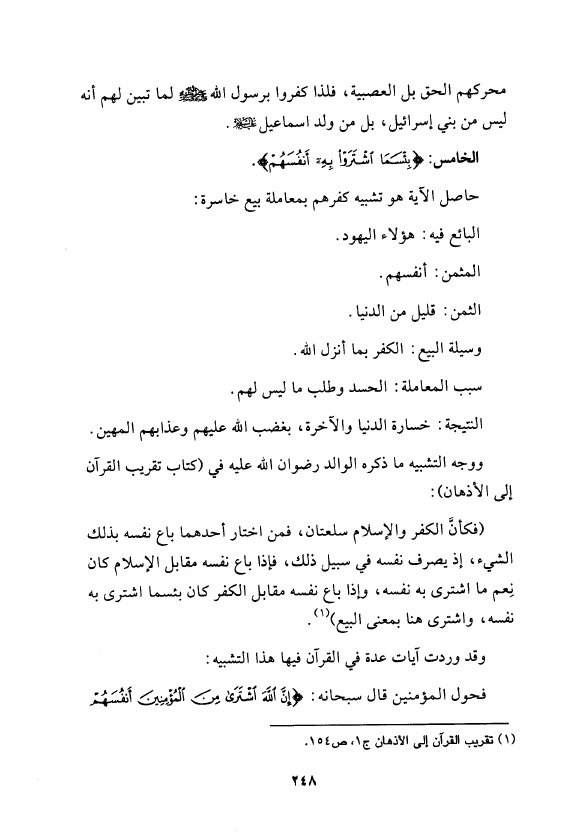 محركهم الحق بل العصبية، فلذا كفروا برسول الله ﷺ لما تبين لهم أنه
ليس من بني إسرائيل، بل من ولد اسماعيل عليه السلام.
الخامس: ﴿بِئْسَمَا ٱشْتَرَوْا۟ بِهِۦٓ أَنفُسَهُمْ﴾.
حاصل الآية هو تشبيه كفرهم بمعاملة بيع خاسرة:
البائع فيه: هؤلاء اليهود.
المثمن: أنفسهم.
الثمن: قليل من الدنيا.
وسيلة البيع: الكفر بما أنزل الله.
سبب المعاملة: الحسد وطلب ما ليس لهم.
النتيجة: خسارة الدنيا والآخرة، بغضب الله عليهم وعذابهم المهين.
ووجه التشبيه ما ذكره الوالد رضوان الله عليه في (كتاب تقريب القرآن
إلى الأذهان):
(فكأنَّ الكفر والإسلام سلعتان، فمن اختار أحدهما باع نفسه بذلك
الشيء، إذ يصرف نفسه في سبيل ذلك، فإذا باع نفسه مقابل الإسلام كان
نِعم ما اشترى به نفسه، وإذا باع نفسه مقابل الكفر كان بئسما اشترى به
نفسه، واشترى هنا بمعنى البيع)(١).
وقد وردت آيات عدة في القرآن فيها هذا التشبيه:
فحول المؤمنين قال سبحانه: ﴿إِنَّ ٱللَّهَ ٱشْتَرَىٰ مِنَ ٱلْمُؤْمِنِينَ أَنفُسَهُمْ
(١) تقريب القرآن إلى الأذهان ج١، ص١٥٤.
٢٤٨